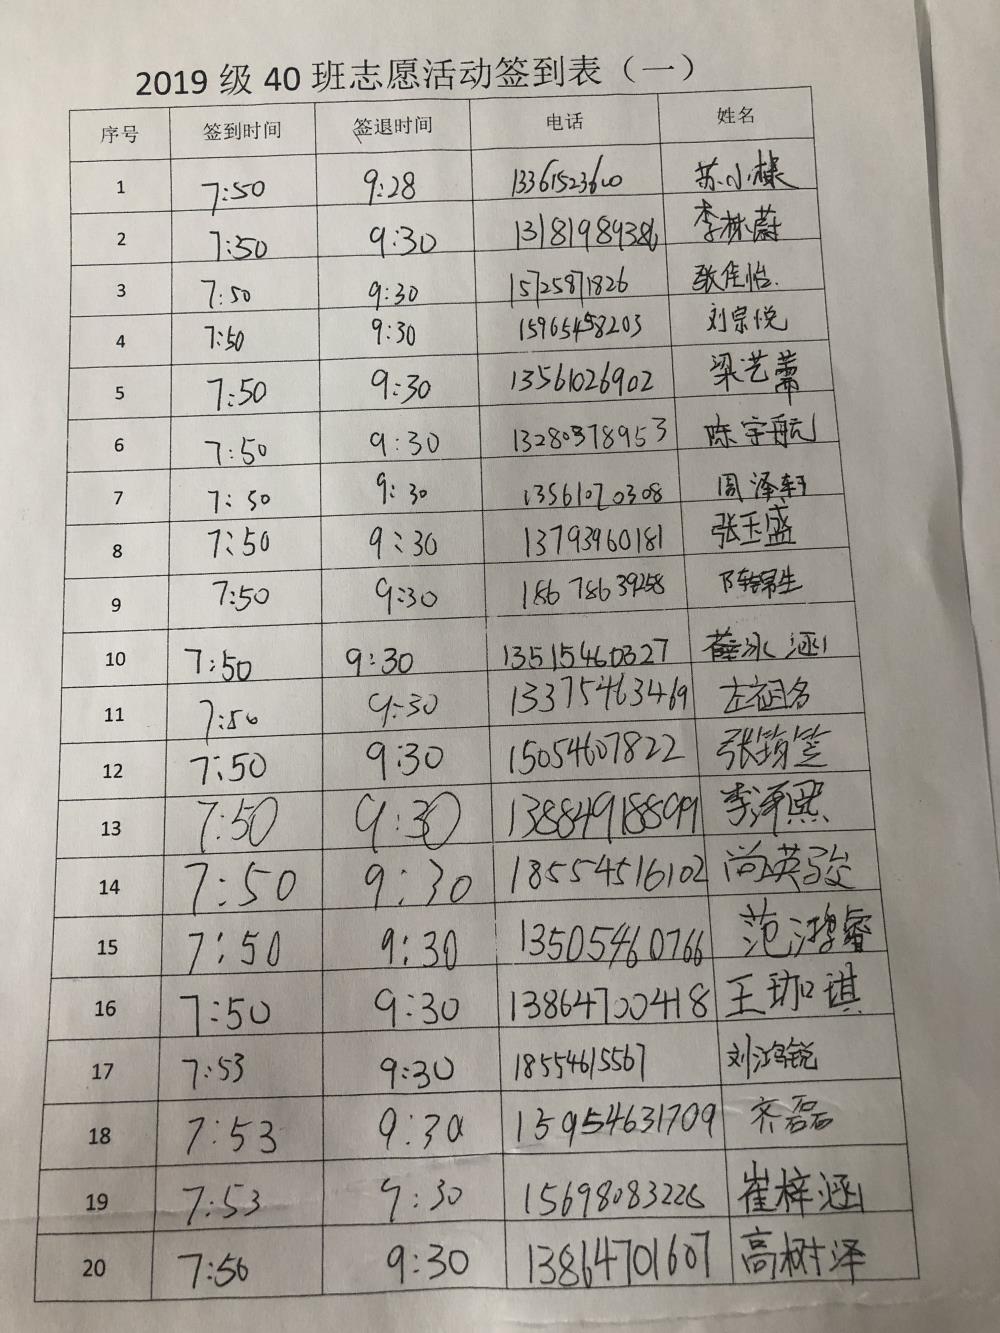 2019 级 40 班志愿活动签到表（一）
序号 签到时间 签退时间 电话 姓名
1 7:50 9:28 13361523600 苏小棣
2 7:50 9:30 李栋蔚
3 7:50 9:30 15725871826 张佳怡
4 7:50 9:30 15965458203 刘宗悦
5 7:50 9:30 13561026902 梁艺
6 7:50 9:30 13280378953 陈宇航
7 7:50 9:30 13561070308 周泽轩
8 7:50 9:30 13793960181 张玉盛
9 7:50 9:30 18678639258 陈锦生
10 7:50 9:30 13515460327 薛冰涵
11 7:50 9:30 13375463469 左祖名
12 7:50 9:30 15054607822 张筠笠
13 7:50 9:30 13884918899 李泽熙
14 7:50 9:30 18554516102 尚英骏
15 7:50 9:30 13505460766 范鸿睿
16 7:50 9:30 13864700418 王珈琪
17 7:53 9:30 18554615567 刘鸿锐
18 7:53 9:30 15954631709 齐磊
19 7:53 9:30 15698083226 崔梓涵
20 7:56 9:30 13864701607 高树泽